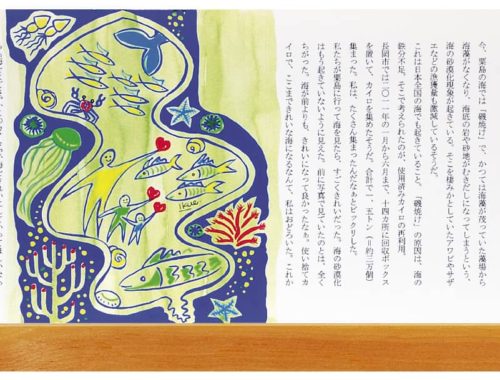 今、粟島の海では「磯焼け」で、かつては海藻が茂っていた藻場から
海藻がなくなり、海底の岩や砂地がむきだしになってしまうという、
海の砂漠化現象が起きている。そこを棲みかとしていたアワビやサザ
エなどの漁獲量も激減しているそうだ。
これは日本全国の海でも起きていること。「磯焼け」の原因は、海の
鉄分不足。そこで考えられたのが、使用済みカイロの再利用。
長岡市では二〇一一年の一月から六月まで、十四カ所に回収ボックス
を置いて、カイロを集めたそうだ。合計で一、五トン（＝約三万個）
集まった。私は、たくさん集まったんだなぁとビックリした。
私たちが粟島に行って海を見たら、すごくきれいだった。海の砂漠化
はもう起きていないように見えた。前に写真で見ていたのとは、全く
ちがった。海が前よりも、きれいになって良かったなぁ。使い捨てカ
イロで、ここまできれいな海になるなんて、私はおどろいた。これか
Ikue